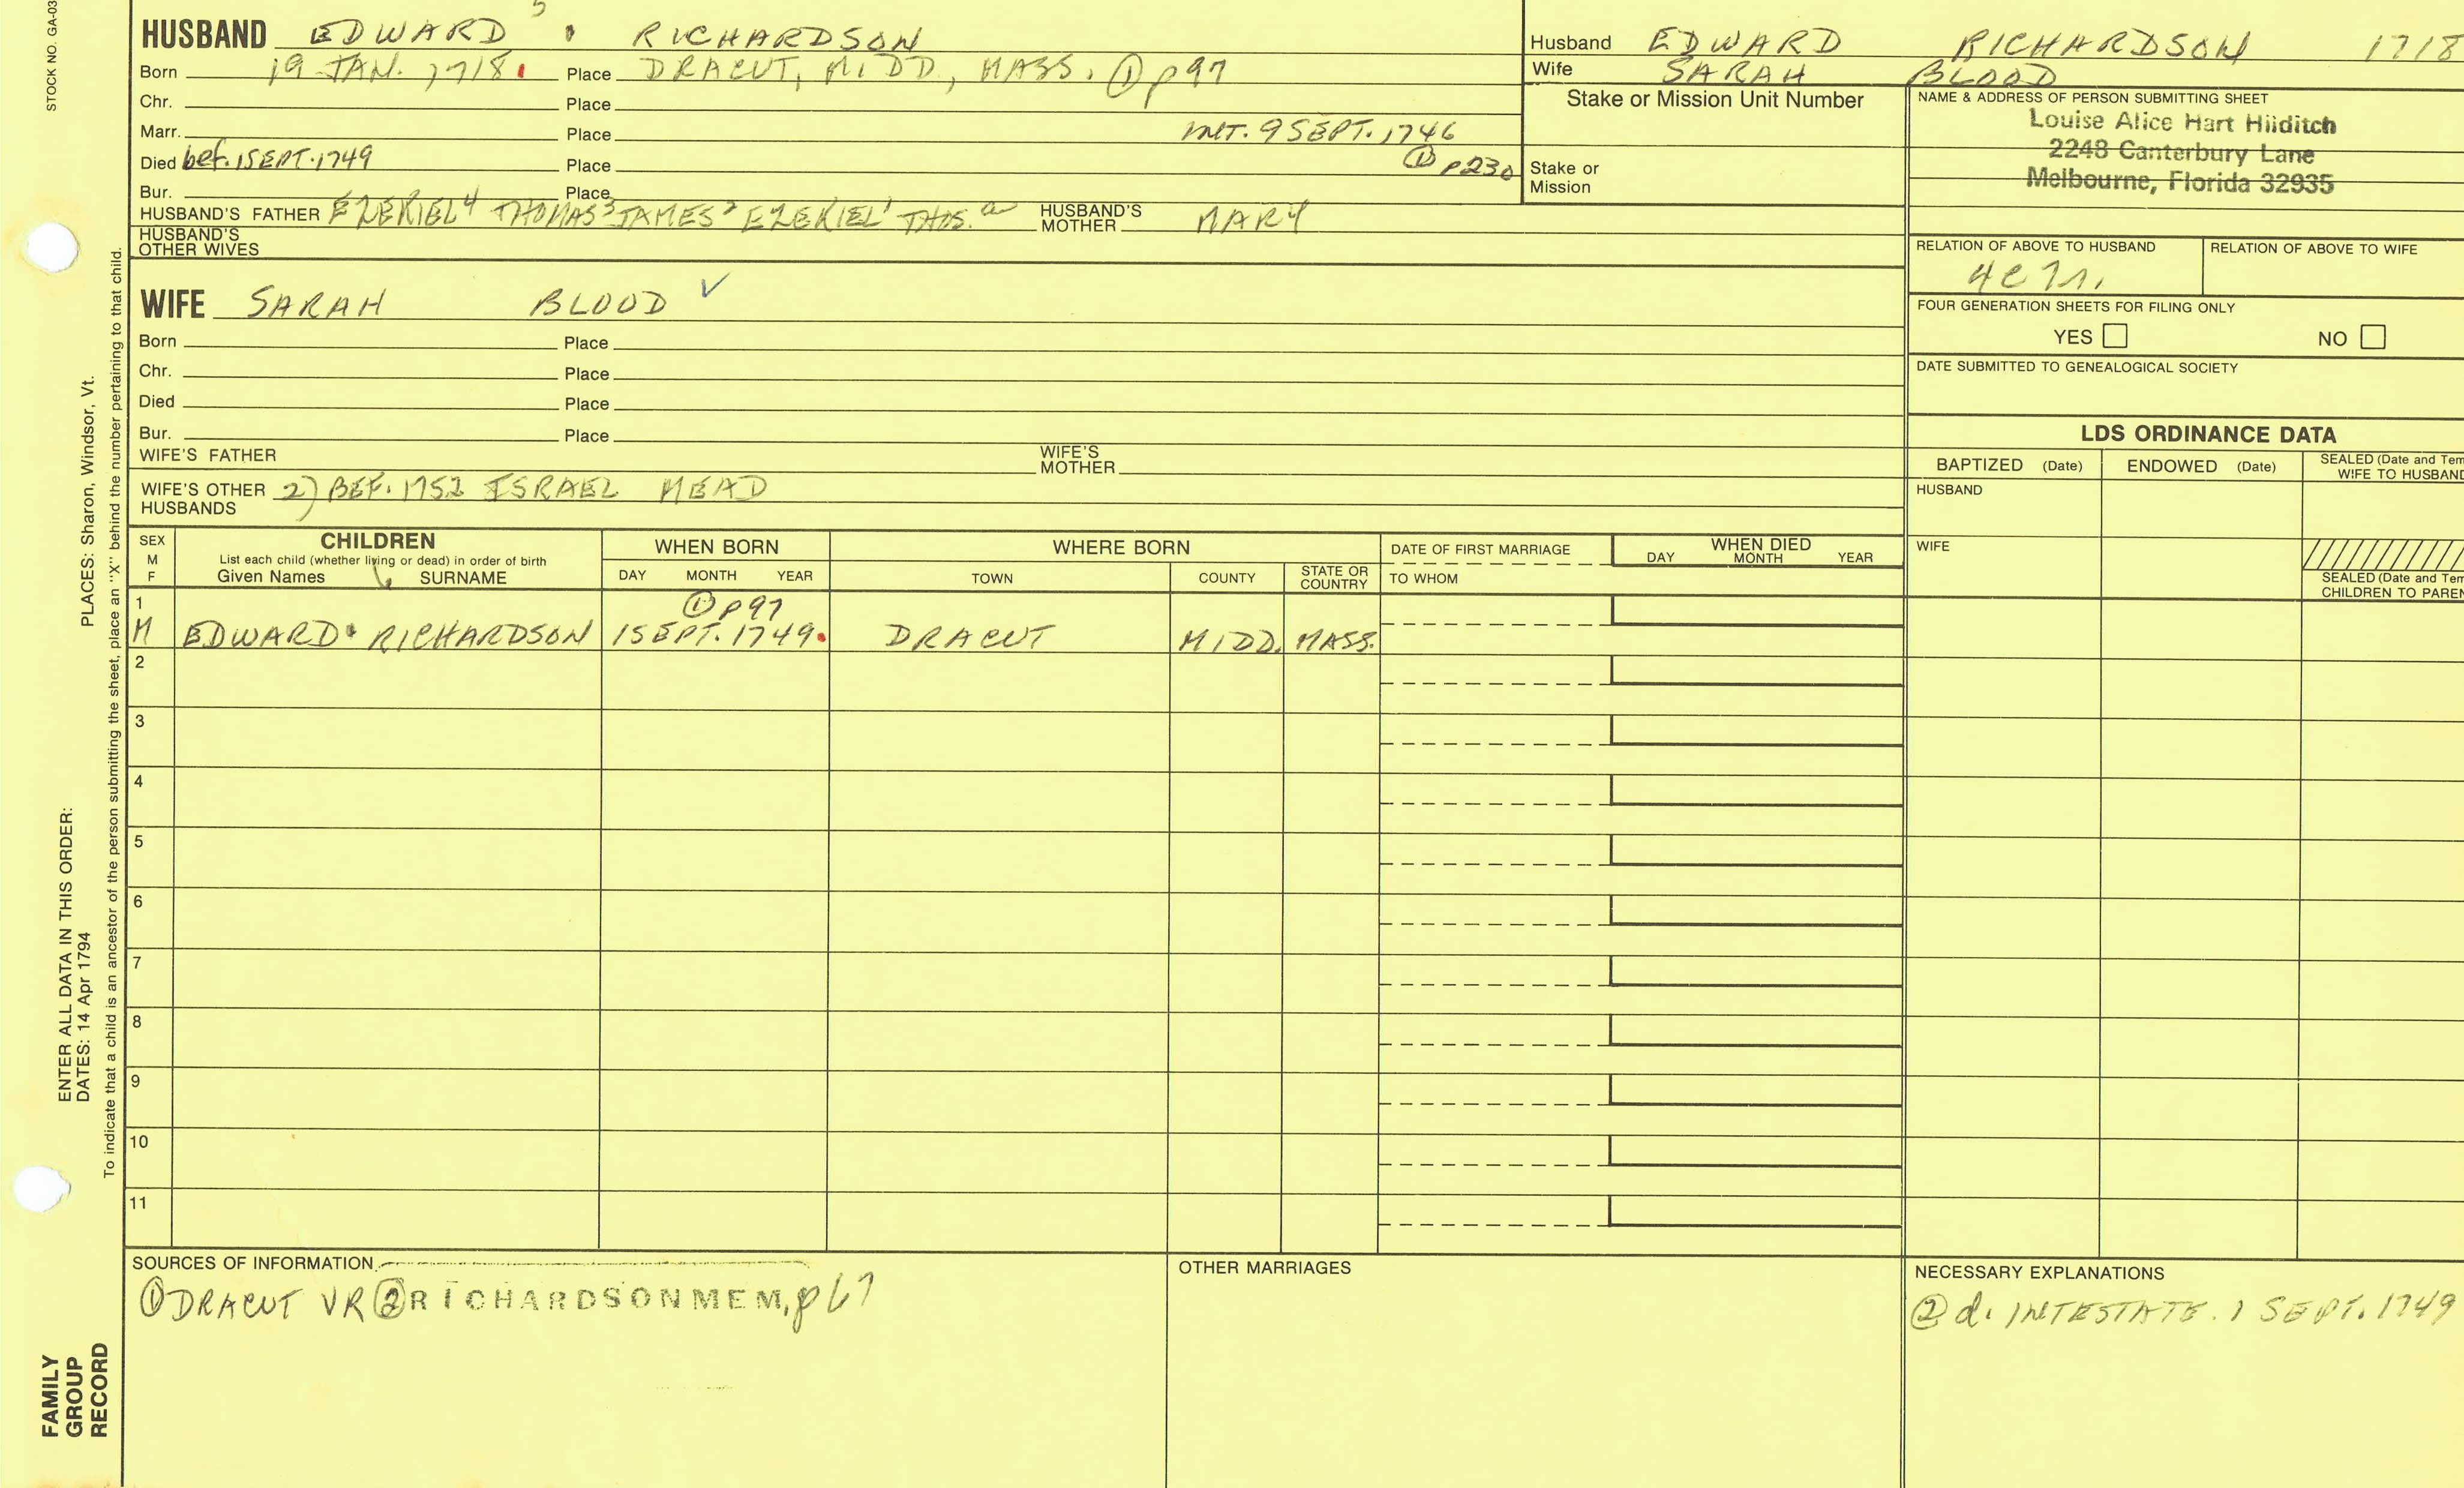 STOCK NO. GA-03
HUSBAND EDWARD 5 RICHARDSON
Born 19 JAN. 1718. Place DRACUT, MIDD., MASS. ① p97
Chr. Place
Marr. Place INT. 9 SEPT. 1746
Died bef. 1 SEPT. 1749 Place ① p230
Bur. Place
HUSBAND'S FATHER EZEKIEL 4 THOMAS 3 JAMES 2 EZEKIEL 1 THOS. a HUSBAND'S MOTHER MARY
HUSBAND'S OTHER WIVES
Husband EDWARD RICHARDSON 1718
Wife SARAH BLOOD
Stake or Mission Unit Number
Stake or
Mission
NAME & ADDRESS OF PERSON SUBMITTING SHEET
Louise Alice Hart Hilditch
2248 Canterbury Lane
Melbourne, Florida 32935
RELATION OF ABOVE TO HUSBAND RELATION OF ABOVE TO WIFE
FOUR GENERATION SHEETS FOR FILING ONLY
YES NO
DATE SUBMITTED TO GENEALOGICAL SOCIETY
WIFE SARAH BLOOD ✓
Born Place
Chr. Place
Died Place
Bur. Place
WIFE'S FATHER WIFE'S MOTHER
WIFE'S OTHER HUSBANDS 2) BEF. 1752 ISRAEL MEAD
LDS ORDINANCE DATA
BAPTIZED (Date) ENDOWED (Date) SEALED (Date and Tem
WIFE TO HUSBAND
HUSBAND
WIFE
SEALED (Date and Tem
CHILDREN TO PAREN
SEX
M
F
CHILDREN
List each child (whether living or dead) in order of birth
Given Names SURNAME
WHEN BORN
DAY MONTH YEAR
WHERE BORN
TOWN COUNTY STATE OR COUNTRY
DATE OF FIRST MARRIAGE
TO WHOM
WHEN DIED
DAY MONTH YEAR
1 ① p97
M EDWARD RICHARDSON 1 SEPT. 1749. DRACUT MIDD. MASS.
2
3
4
5
6
7
8
9
10
11
SOURCES OF INFORMATION
① DRACUT VR ② RICHARDSON MEM, p67
OTHER MARRIAGES
NECESSARY EXPLANATIONS
② d. INTESTATE. 1 SEPT. 1749
ENTER ALL DATA IN THIS ORDER:
DATES: 14 Apr 1794
PLACES: Sharon, Windsor, Vt.
To indicate that a child is an ancestor of the person submitting the sheet, place an "X" behind the number pertaining to that child.
FAMILY
GROUP
RECORD